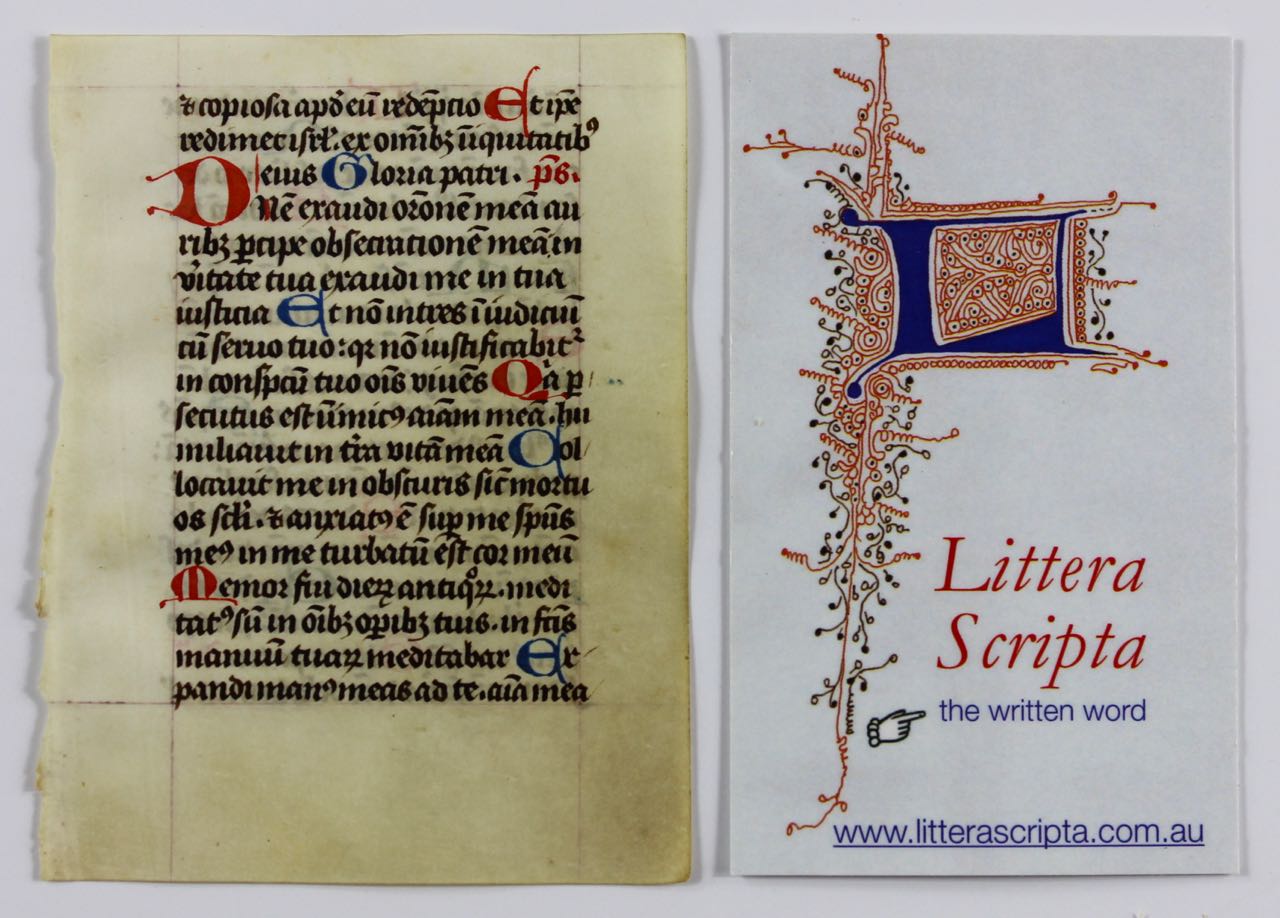 ⁊ copiosa apd̄ eū redēpcio Et ip̄e
redimet isrl̄. ex om̄ibꝫ īiquitatibꝰ
eius Gloria patri. p̄s.
DNē exaudi or̄onē meā au
ribꝫ ꝑcipe obsecrationē meā in
v̄itate tua exaudi me in tua
iusticia Et nō intres ī iudiciū
cū seruo tuo: qꝛ nō iustificabit᷑
in consp̄cu tuo oīs viuēs Qīa ꝑ
secutus est īimicꝰ aīam meā. hu
miliauit in t̄ra vitā meā Col
locauit me in obscuris sic̄ mortu
os scl̄i. ⁊ anxiatꝰ ē suꝑ me sp̄us
meꝰ in me turbatū ēst cor meū
Memor fui dieꝝ antiqͦꝝ. medi
tatꝰ sū in oībꝫ oꝑibꝫ tuis. in fc̄is
manuū tuaꝝ meditabar Ex
pandi manꝰ meas ad te. aīa mea
Littera
Scripta
the written word
www.litterascripta.com.au